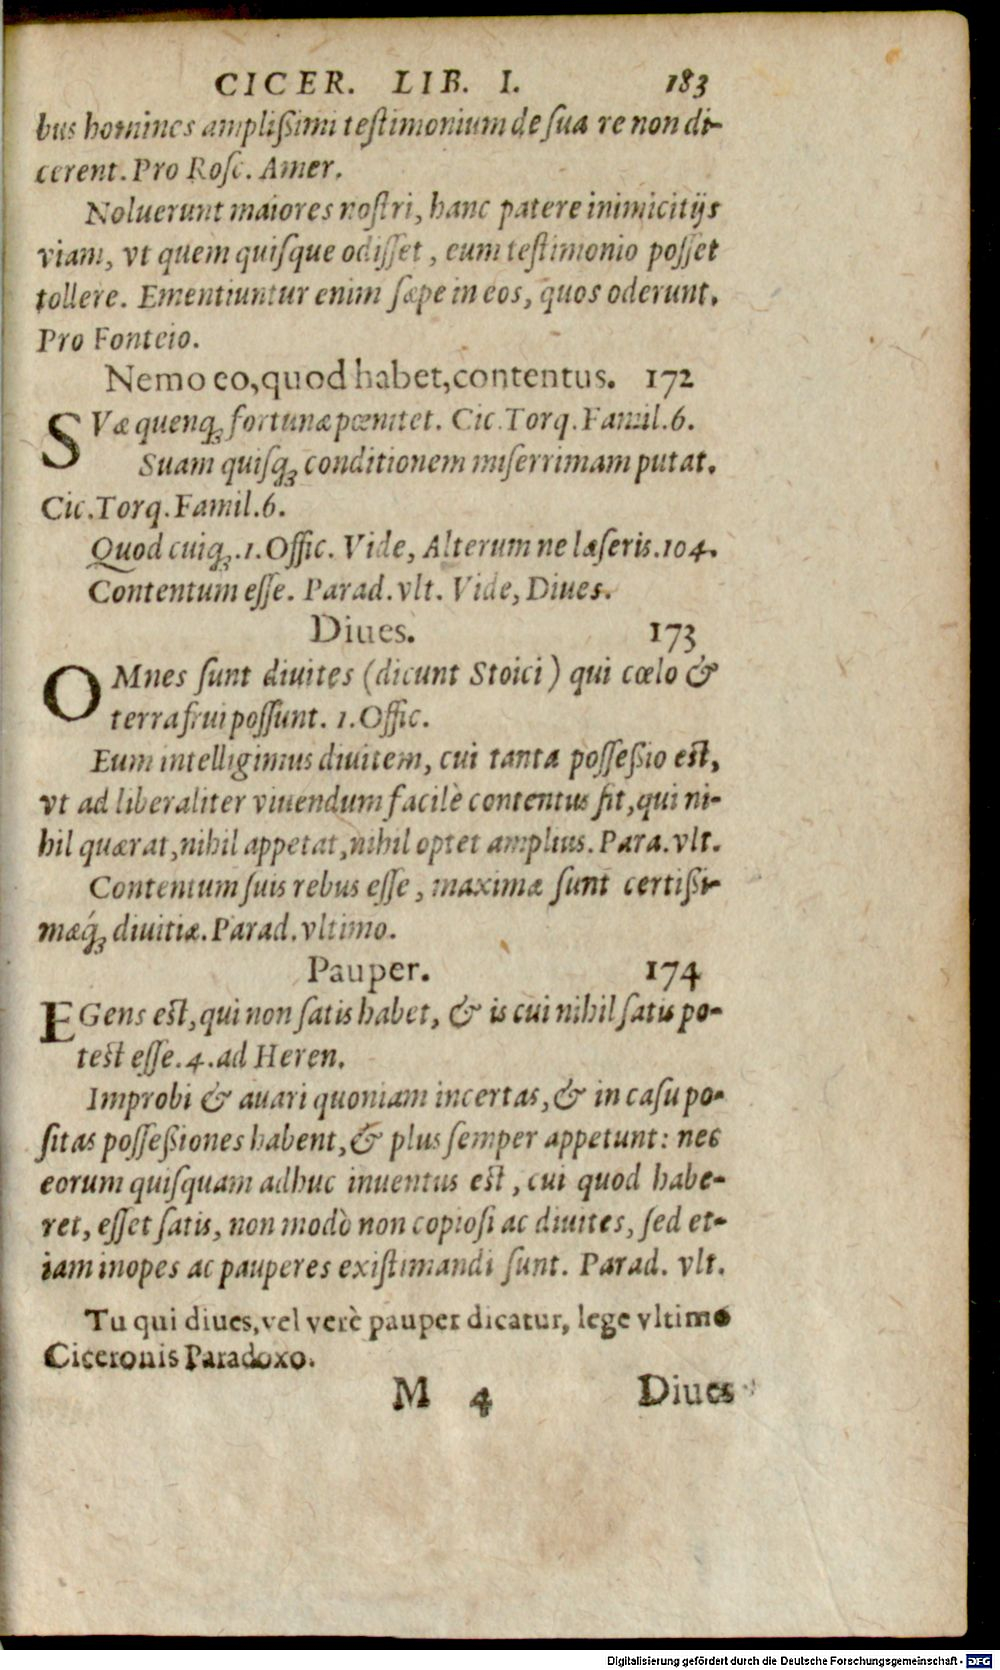 CICER. LIB. I. 183
bus homines amplißimi teſtimonium de ſua re non di-
cerent. Pro Roſc. Amer.
Noluerunt maiores noſtri, hanc patere inimicitijs
viam, vt quem quiſque odiſſet, eum teſtimonio poſſet
tollere. Ementiuntur enim ſæpe in eos, quos oderunt.
Pro Fonteio.
Nemo eo, quod habet, contentus. 172
SVæ quenq; fortunæ pœnitet. Cic. Torq. Famil. 6.
Suam quiſq; conditionem miſerrimam putat.
Cic. Torq. Famil. 6.
Quod cuiq;. 1. Offic. Vide, Alterum ne læſeris. 104.
Contentum eſſe. Parad. vlt. Vide, Diues.
Diues. 173
OMnes ſunt diuites (dicunt Stoici) qui cœlo &
terra frui poſſunt. 1. Offic.
Eum intelligimus diuitem, cui tanta poſſeßio eſt,
vt ad liberaliter viuendum facilè contentus ſit, qui ni-
hil quærat, nihil appetat, nihil optet amplius. Para. vlt.
Contentum ſuis rebus eſſe, maximæ ſunt certißi-
mæq́; diuitiæ. Parad. vltimo.
Pauper. 174
EGens eſt, qui non ſatis habet, & is cui nihil ſatis po-
teſt eſſe. 4. ad Heren.
Improbi & auari quoniam incertas, & in caſu po-
ſitas poſſeßiones habent, & plus ſemper appetunt: nec
eorum quiſquam adhuc inuentus eſt, cui quod habe-
ret, eſſet ſatis, non modò non copioſi ac diuites, ſed et-
iam inopes ac pauperes exiſtimandi ſunt. Parad. vlt.
Tu qui diues, vel verè pauper dicatur, lege vltimo
Ciceronis Paradoxo.
M 4 Diues
Digitalisierung gefördert durch die Deutsche Forschungsgemeinschaft - DFG